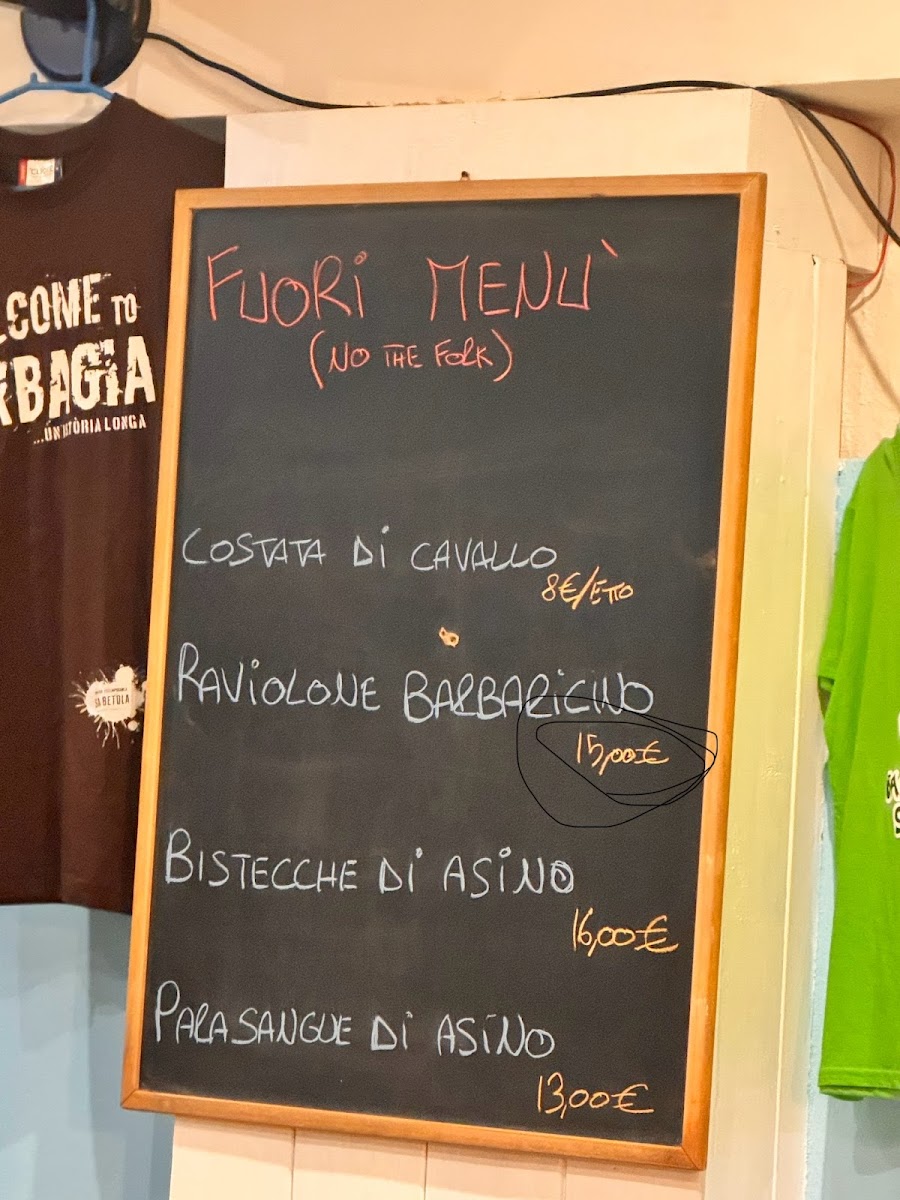 FUORI MENÙ
(NO THE FORK)
COSTATA DI CAVALLO
8€/ETTO
RAVIOLONE BARBARICINO
15,00€
BISTECCHE DI ASINO
16,00€
PARASANGUE DI ASINO
13,00€
LCOME TO
RBAGIA
...UN'ISTÒRIA LONGA
SA BETOLA